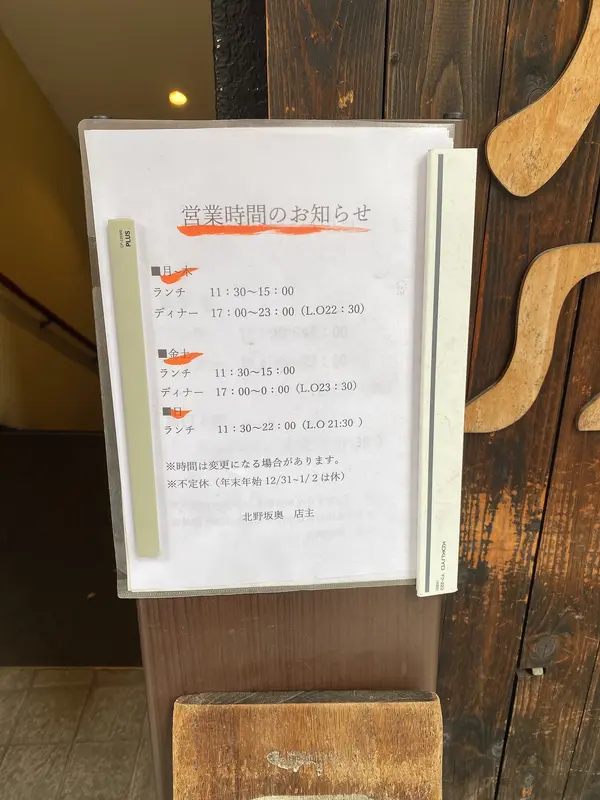 営業時間のお知らせ
■月~木
ランチ 11：30～15：00
ディナー 17：00～23：00（L.O22：30）
■金土
ランチ 11：30～15：00
ディナー 17：00～0：00（L.O23：30）
■日
ランチ 11：30～22：00（L.O 21:30 ）
※時間は変更になる場合があります。
※不定休（年末年始 12/31~1/2は休）
北野坂奥 店主
PLUS
KOKUYO